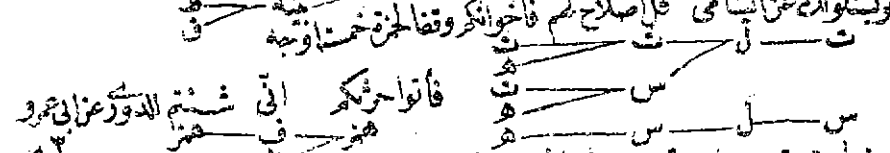 ويسئلونك عن اليتامى قل اصلاح لهم فاخوانكم وقفا لحمزة خمسة اوجه
ت ل ت ت
ه
فاتوا حرثكم انى شئتم للدورى عن ابى عمرو
س ت
ه
س ل س ه
همز ف همز